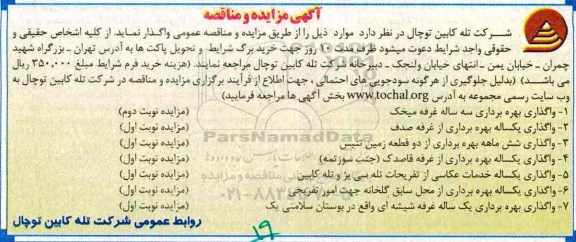 آگهی مزایده و مناقصه
شـــرکت تله کابین توچال در نظر دارد موارد ذیل را از طریق مزایده و مناقصه عمومی واگذار نماید. از کلیه اشخاص حقیقی و
حقوقی واجد شرایط دعوت میشود ظرف مدت ۱۰ روز جهت خرید برگ شرایط و تحویل پاکت ها به آدرس تهران ـ بزرگراه شهید
چمران ـ خیابان یمن ـ انتهای خیابان ولنجک ـ دبیرخانه شرکت تله کابین توچال مراجعه نمایند. (هزینه خرید فرم شرایط مبلغ ۳۵۰،۰۰۰ ریال
می باشـــد) (بدلیل جلوگیری از هرگونه سودجویی‌های احتمالی ، جهت اطلاع از فرآیند برگزاری مزایده و مناقصه در شرکت تله کابین توچال به
وب سایت رسمی مجموعه به آدرس www.tochal.org بخش آگهی ها مراجعه فرمایید)
۱- واگذاری بهره برداری سه ساله غرفه میخک (مزایده نوبت دوم)
۲- واگذاری یکساله بهره برداری از غرفه صدف (مزایده نوبت اول)
۳- واگذاری شش ماهه بهره برداری از دو قطعه زمین تنیس (مزایده نوبت اول)
۴- واگذاری یکساله بهره برداری از غرفه قاصدک (جنب سورتمه) (مزایده نوبت اول)
۵- واگذاری یکساله خدمات عکاسی از تفریحات تله سی یژ و تله کابین (مزایده نوبت اول)
۶- واگذاری یکساله بهره برداری از محل سابق گلخانه جهت امور تفریحی (مزایده نوبت اول)
۷- واگذاری بهره برداری یک ساله غرفه شیشه ای واقع در بوستان سلامتی یک (مزایده نوبت اول)
روابط عمومی شرکت تله کابین توچال
ParsNamadData
۱۹